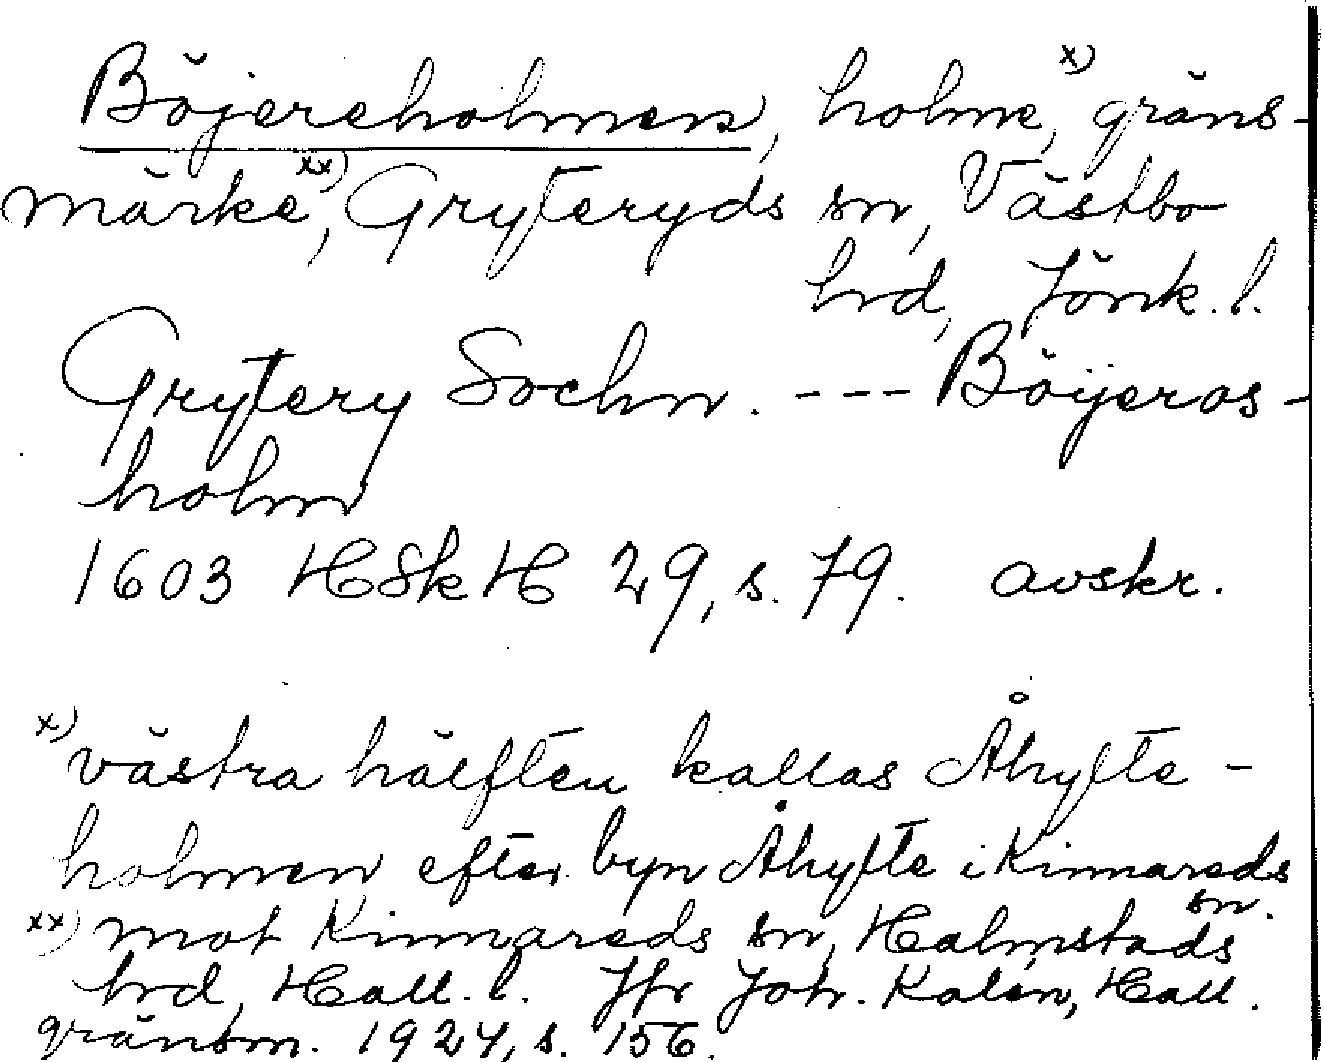 Böjereholmen, holme,x) gräns-
märkexx), Gryteryds sn, Västbo
hrd, Jönk. l.
Grytery Sochn. --- Böijeros-
holm
1603 HSkH 29, s. 79. avskr.
x) västra hälften kallas Åhylte-
holmen efter byn Åhylte i Kinnareds
sn.
xx) mot Kinnareds sn, Halmstads
hrd, Hall. l. Jfr Joh. Kalén, Hall.
gränsm. 1924, s. 156.